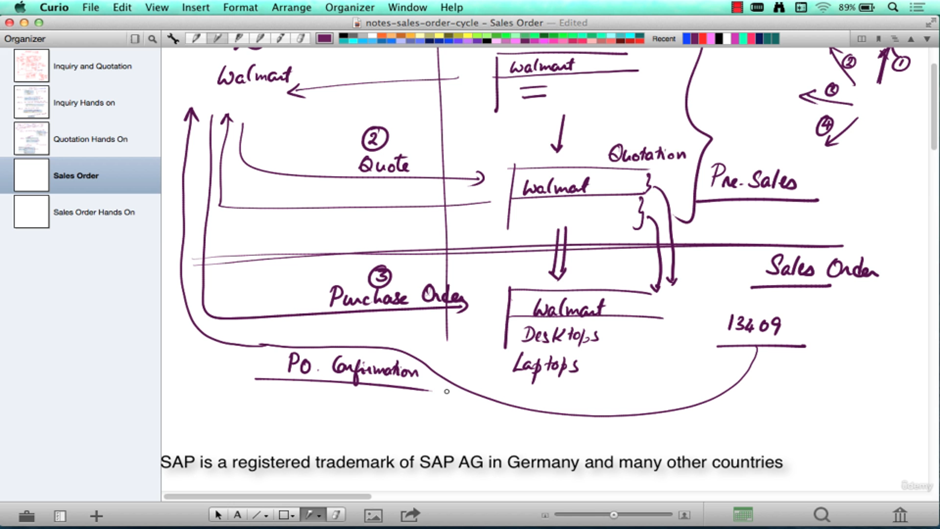 Curio File Edit View Insert Format Arrange Organizer Window Help 89%
notes-sales-order-cycle – Sales Order — Edited
Organizer
Recent
Inquiry and Quotation
Inquiry Hands on
Quotation Hands On
Sales Order
Sales Order Hands On
Walmart
Walmart
② ①
③
④
②
Quote
Quotation
Walmat
Pre-Sales
Sales Order
③
Purchase Order
Walmart
Desktops
Laptops
13409
PO. Confirmation
SAP is a registered trademark of SAP AG in Germany and many other countries
Udemy
A